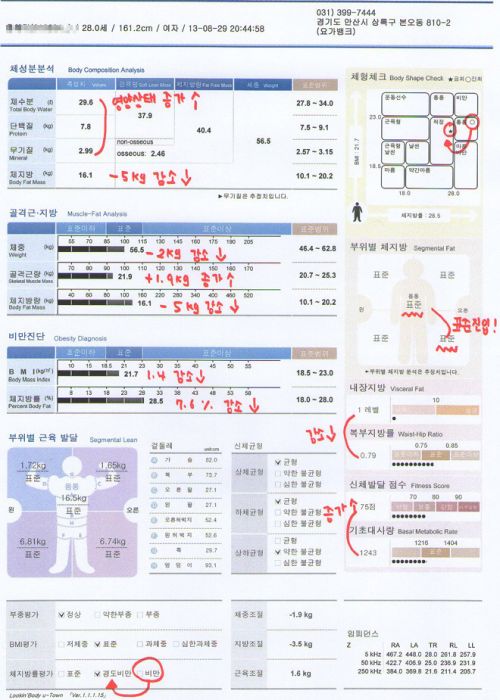 28.0세 / 161.2cm / 여자 / 13-08-29 20:44:58
031) 399-7444
경기도 안산시 상록구 본오동 810-2
(요가뱅크)
체성분분석 Body Composition Analysis
측정치 Values 근육량 Soft Lean Mass 제지방량 Fat Free Mass 체중 Weight 표준범위
체수분 (ℓ) 29.6 27.8 ~ 34.0
Total Body Water
영양상태 증가 ↑
37.9
단백질 (kg) 7.8 40.4 7.5 ~ 9.1
Protein
56.5
non-osseous
무기질 (kg) 2.99 osseous: 2.46 2.57 ~ 3.15
Mineral
체지방 (kg) 16.1 -5kg 감소 ↓ 10.1 ~ 20.2
Body Fat Mass
▶무기질은 추정치입니다.
골격근·지방 Muscle-Fat Analysis
표준이하 표준 표준이상 표준범위
55 70 85 100 115 130 145 160 175 190 205
체중 (kg) 56.5 -2kg 감소 ↓ 46.4 ~ 62.8
Weight
70 80 90 100 110 120 130 140 150 160 170
골격근량 (kg) 21.9 +1.9kg 증가 ↑ 20.7 ~ 25.3
Skeletal Muscle Mass
40 60 80 100 160 220 280 340 400 460 520
체지방량 (kg) 16.1 -5kg 감소 ↓ 10.1 ~ 20.2
Body Fat Mass
비만진단 Obesity Diagnosis
표준이하 표준 표준이상 표준범위
10 15 18.5 21 23 30 35 40 45 50 55
B M I (kg/㎡) 21.7 1.4 감소 ↓ 18.5 ~ 23.0
Body Mass Index
8 13 18 23 28 33 38 43 48 53 58
체지방률 (%) 28.5 7.6% 감소 ↓ 18.0 ~ 28.0
Percent Body Fat
부위별 근육 발달 Segmental Lean
1.72kg 1.65kg
표준 표준
몸통
16.5kg
표준
왼 오른
6.81kg 6.74kg
표준 표준
겉둘레 unit:cm
가 슴 82.0
복 부 73.7
오 른 팔 27.1
왼 팔 27.1
오른허벅지 52.4
왼허벅지 52.6
목 29.7
엉 덩 이 93.1
신체균형
상체균형 ✓균형
약한 불균형
심한 불균형
하체균형 ✓균형
약한 불균형
심한 불균형
상하균형 균형
✓약한 불균형
심한 불균형
체형체크 Body Shape Check ★금회○전회
운동선수 통통 비만
23.0
근육형 적정 통통
★ ○
BMI : 21.7
근육형 날씬 날씬 마른 비만
18.5
마름 약간마름
18.0 28.0
체지방률 : 28.5
부위별 체지방 Segmental Fat
표준 표준
몸통
표준
왼 오른
표준진입!
표준 표준
▶부위별 체지방 분석은 추정치입니다.
내장지방 Visceral Fat
1 레벨 10
감소 ↓
복부지방률 Waist-Hip Ratio
0.79 0.75 0.85
표준
신체발달 점수 Fitness Score
증가 ↑
75점 70 80 90
기초대사량 Basal Metabolic Rate
1243 1216 1404
표준
부종평가 ✓정상 약한부종 부종
BMI평가 저체중 ✓표준 과체중 심한과체중
체지방률평가 표준 ✓경도비만 비만
체중조절 -1.9 kg
지방조절 -3.5 kg
근육조절 1.6 kg
임피던스
Z RA LA TR RL LL
5 kHz 467.2 448.0 28.0 261.8 257.9
50 kHz 422.7 406.9 25.0 236.9 231.9
250 kHz 384.0 369.8 21.9 211.4 205.7
Lookin'Body u-Town 「Ver.1.1.1.15」